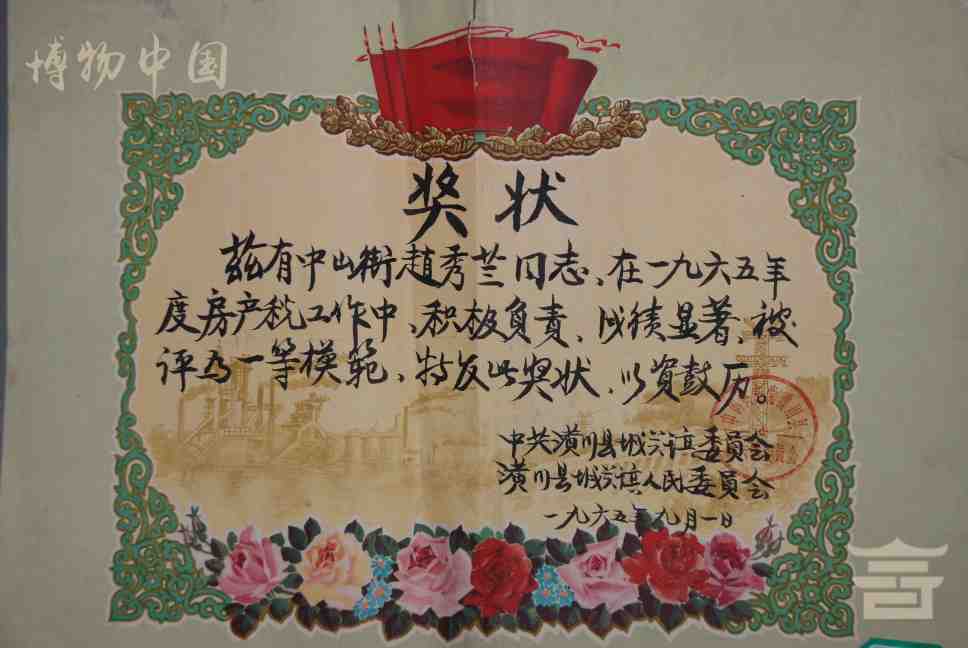 博物中国
奖状
兹有中山街赵秀兰同志、在一九六五年
度房产税工作中、积极负责、成绩显著、被
评为一等模範、特发此奖状、以资鼓历。
中共潢川县城关镇委員会
潢川县城关镇人民委員会
一九六五年九月一日